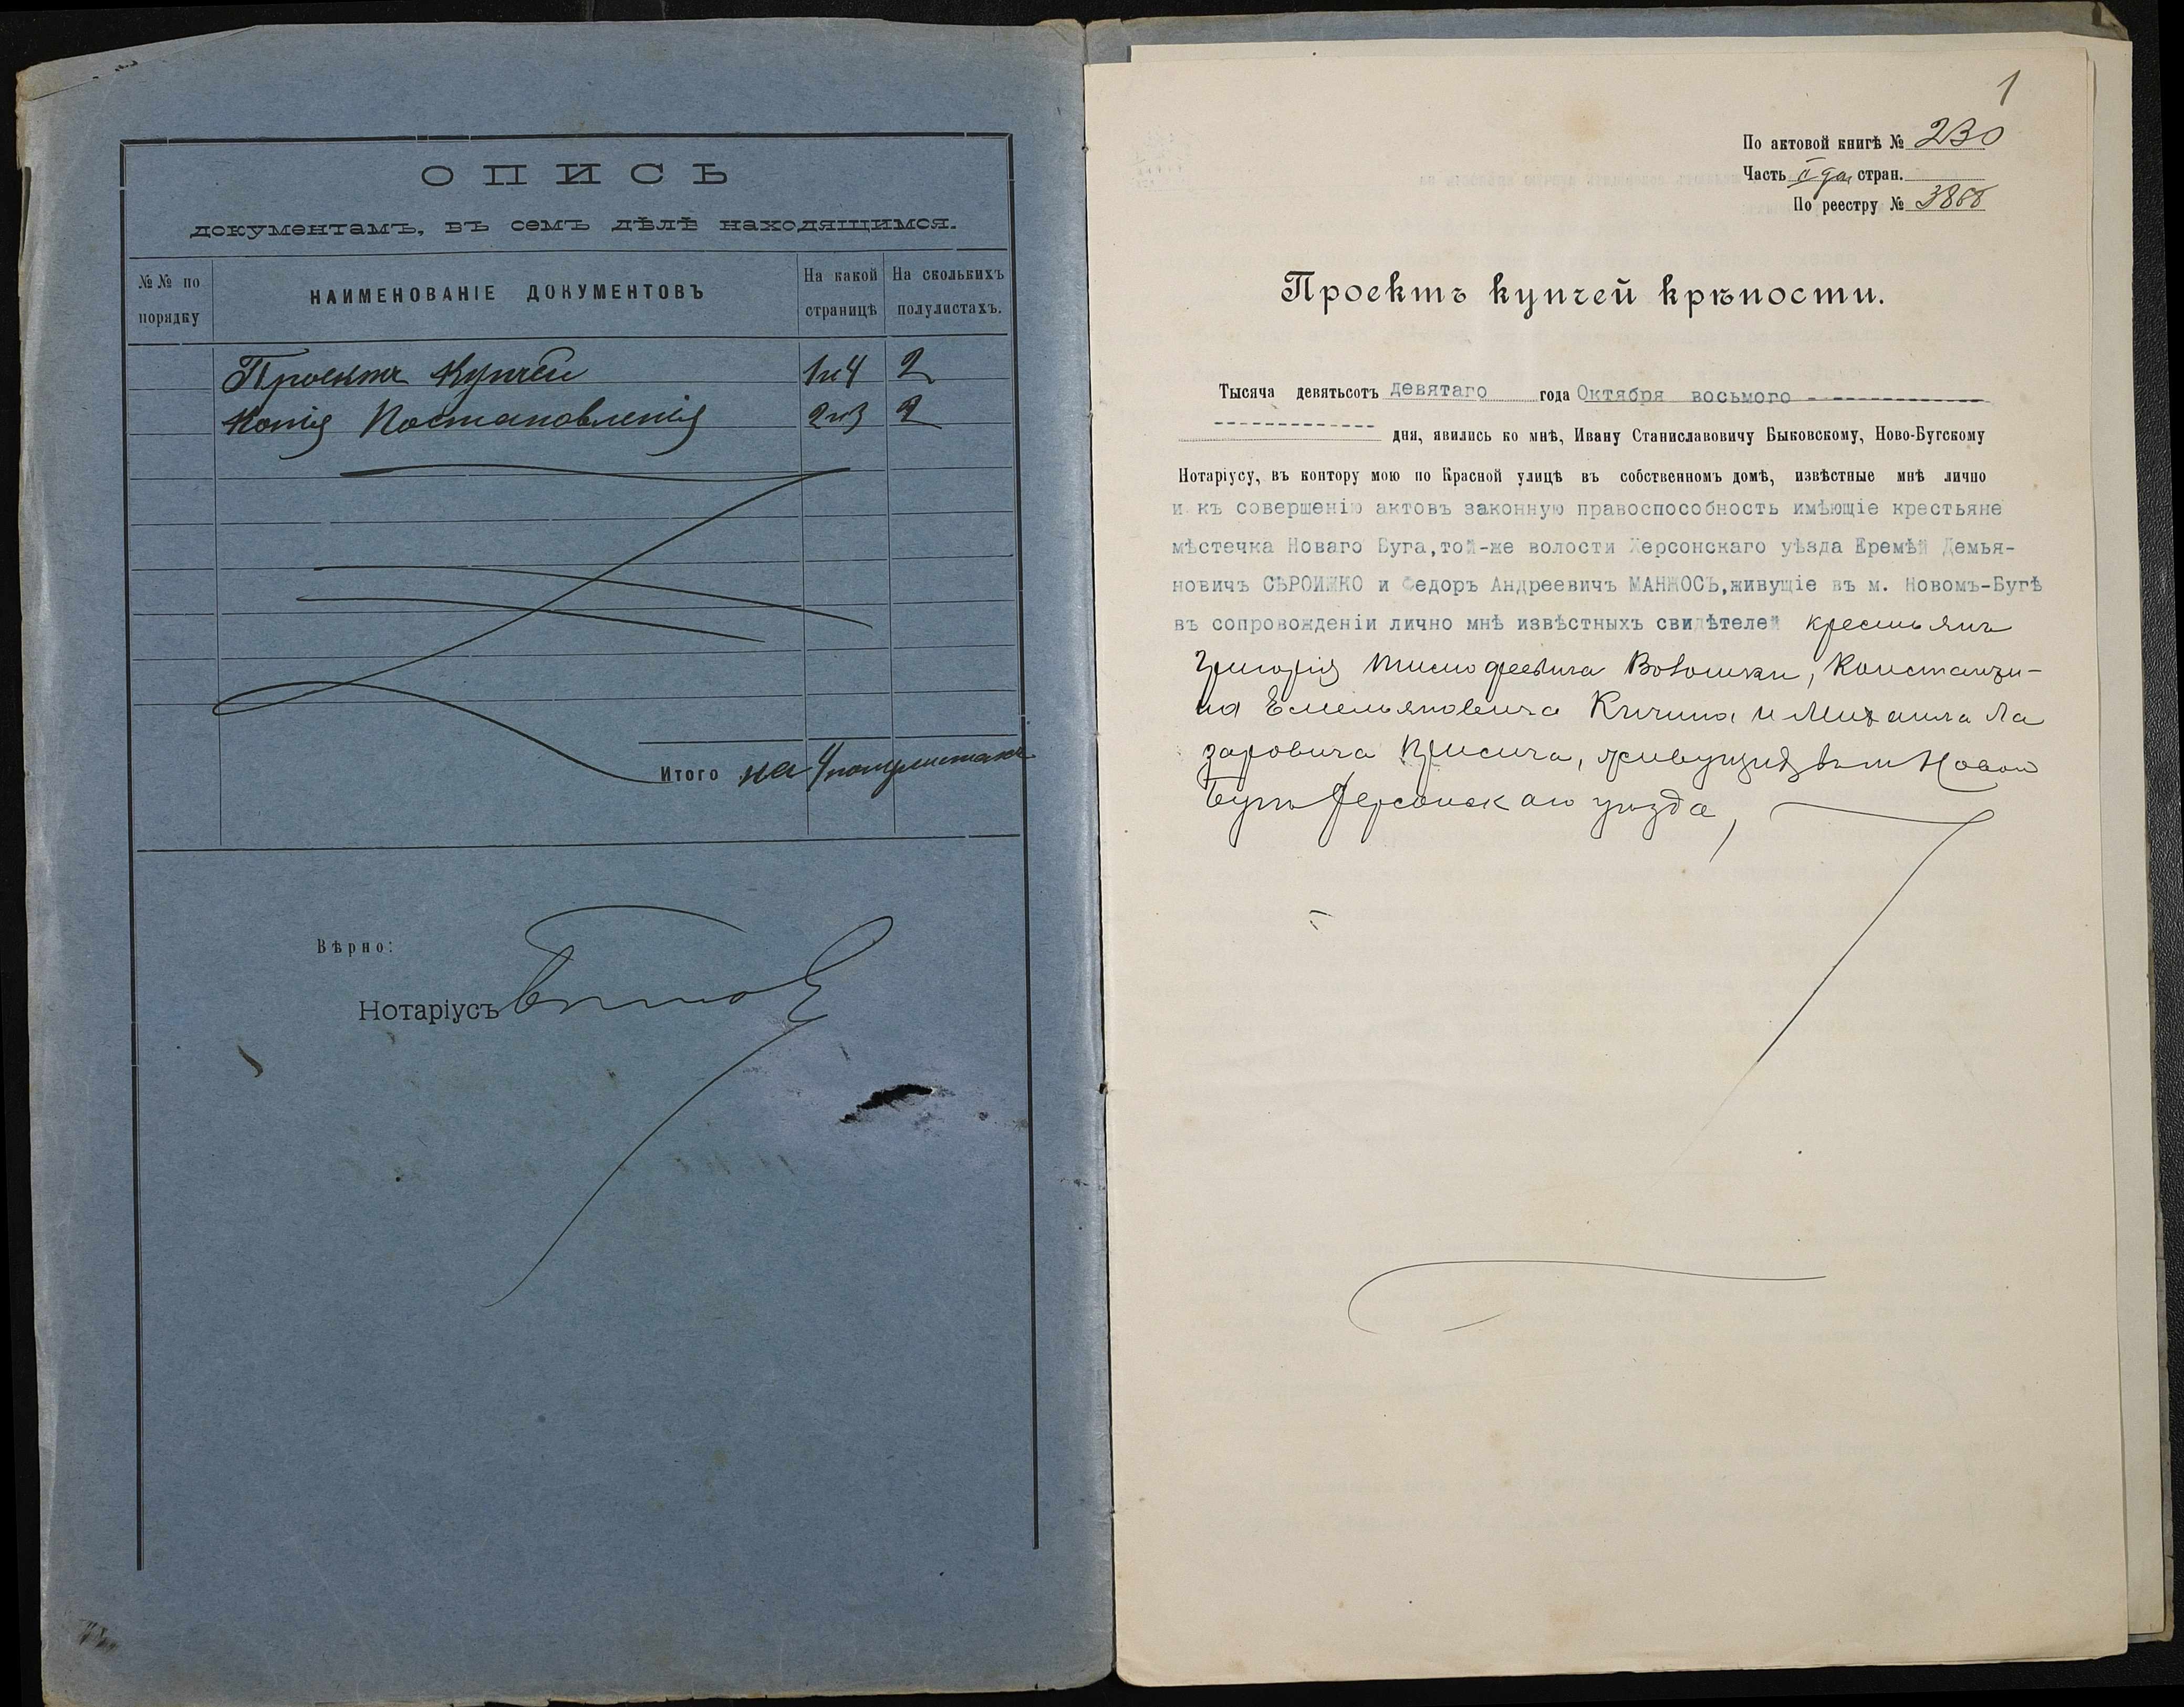 ОПИСЬ
документамъ, въ семъ дѣлѣ находящимся.
№№ по порядку
НАИМЕНОВАНІЕ ДОКУМЕНТОВЪ
На какой страницѣ
На сколькихъ полулистахъ.
Проектъ Купчей 1и4 2
Копія Постановленія 2и3 2
Итого на 4 полулистахъ
Вѣрно:
Нотаріусъ
1
По актовой книгѣ № 230
Часть II стран.
По реестру № 3868
Проектъ купчей крѣпости.
Тысяча девятьсотъ девятаго года Октября восьмого
дня, явились ко мнѣ, Ивану Станиславовичу Быковскому, Ново-Бугскому
Нотаріусу, въ контору мою по Красной улицѣ въ собственномъ домѣ, извѣстные мнѣ лично
и къ совершенію актовъ законную правоспособность имѣющіе крестьяне
мѣстечка Новаго Буга, той-же волости Херсонскаго уѣзда Еремѣй Демья-
новичъ СѢРОИЖКО и Федоръ Андреевичъ МАНЖОСЪ, живущіе въ м. Новомъ-Бугѣ
въ сопровожденіи лично мнѣ извѣстныхъ свидѣтелей крестьянъ
Григорія Тимофеевича Вовошки, Константи-
на Емельяновича Кичина и Михаила Ла
заровича Присича, живущихъ въ м Новом
Бугѣ Херсонскаго уѣзда,